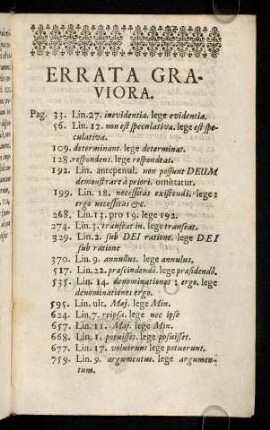 ERRATA GRA-
VIORA.
Pag. 33. Lin. 27. inevidentia. lege evidentia.
56. Lin. 12. non est speculativa. lege est spe-
culativa.
109. determinant. lege determinat.
128. respondens. lege respondeas.
192. Lin. antepenul. non possunt DEUM
demonstrare à priori. omittatur.
199. Lin. 18. necessitas existendi. lege:
ergo necessitas &c.
268. Lin. 13. pro 19. lege 192.
274. Lin. 3. transeat in. lege transeat.
329. Lin. 2. sub DEI ratione. lege DEI
sub ratione
370. Lin. 9. annullus. lege annulus.
517. Lin. 22. prascindendo. lege præsidendo.
535. Lin. 14. denominationes; ergo. lege
denominationes ergo.
595. Lin. ult. Maj. lege Min.
624. Lin. 7. reipsa. lege hoc ipso
657. Lin. 11. Maj. lege Min.
668. Lin. 1. potuisset. lege posuisset.
677. Lin. 17. voluerunt lege potuerunt.
759. Lin. 9. argumentus. lege argumen-
tum.